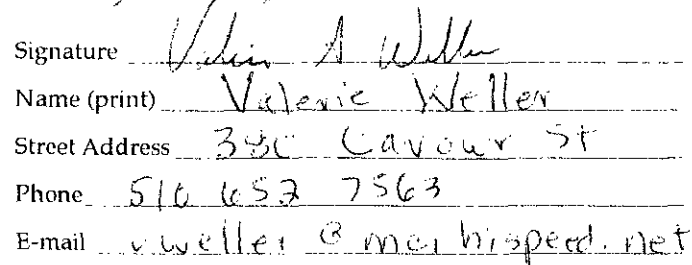 Signature Valerie A Weller
Name (print) Valerie Weller
Street Address Cavour St
Phone 510 652 7563
E-mail vweller@mchispeed.net